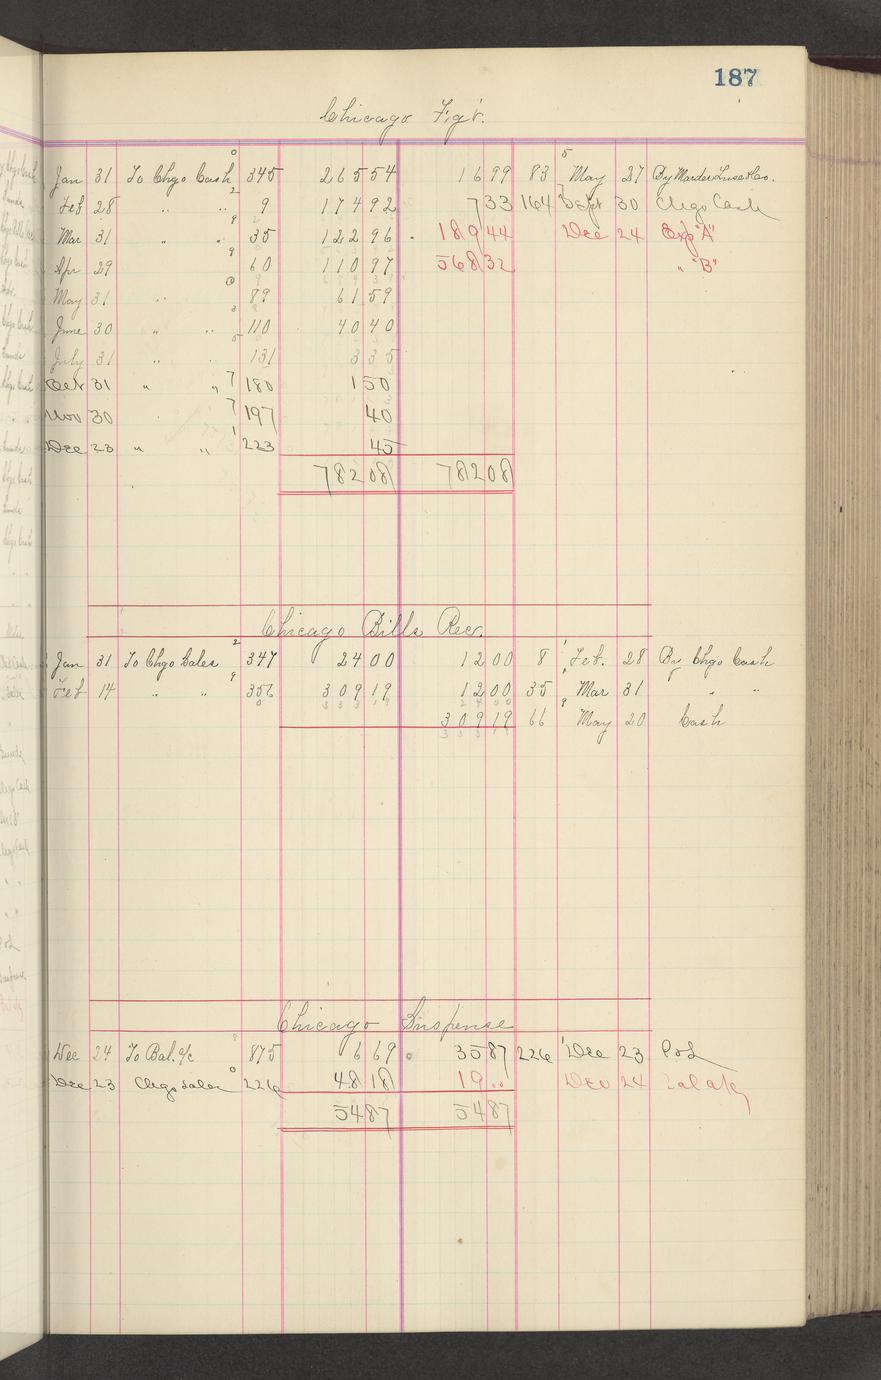 187
Chicago Frg't.
Jan 31 To Chgo Cash 345 265 54 16 99 83 May 27 By Marder Luse & Co.
Feb 28 " " 9 174 92 7 33 164 Sept 30 Chgo Cash
Mar 31 " " 35 122 96 189 44 Dec 24 Exp "A"
Apr 29 60 110 97 568 32 " "B"
May 31 " 89 61 59
June 30 " " 110 40 40
July 31 " " 131 3 35
Oct 31 " " 180 1 50
Nov 30 " 197 40
Dec 23 " " 223 45
782 08 782 08
Chicago Bills Rec.
Jan 31 To Chgo Sales 347 24 00 12 00 8 Feb. 28 By Chgo Cash
Feb 14 " " 356 309 19 12 00 35 Mar 31 " "
309 19 66 May 20 Cash
Chicago Suspense
Dec 24 To Bal. a/c 875 6 69 35 87 226 Dec 23 P & L
Dec 23 Chgo Sales 226 48 18 19 .. Dec 24 Bal a/c
54 87 54 87